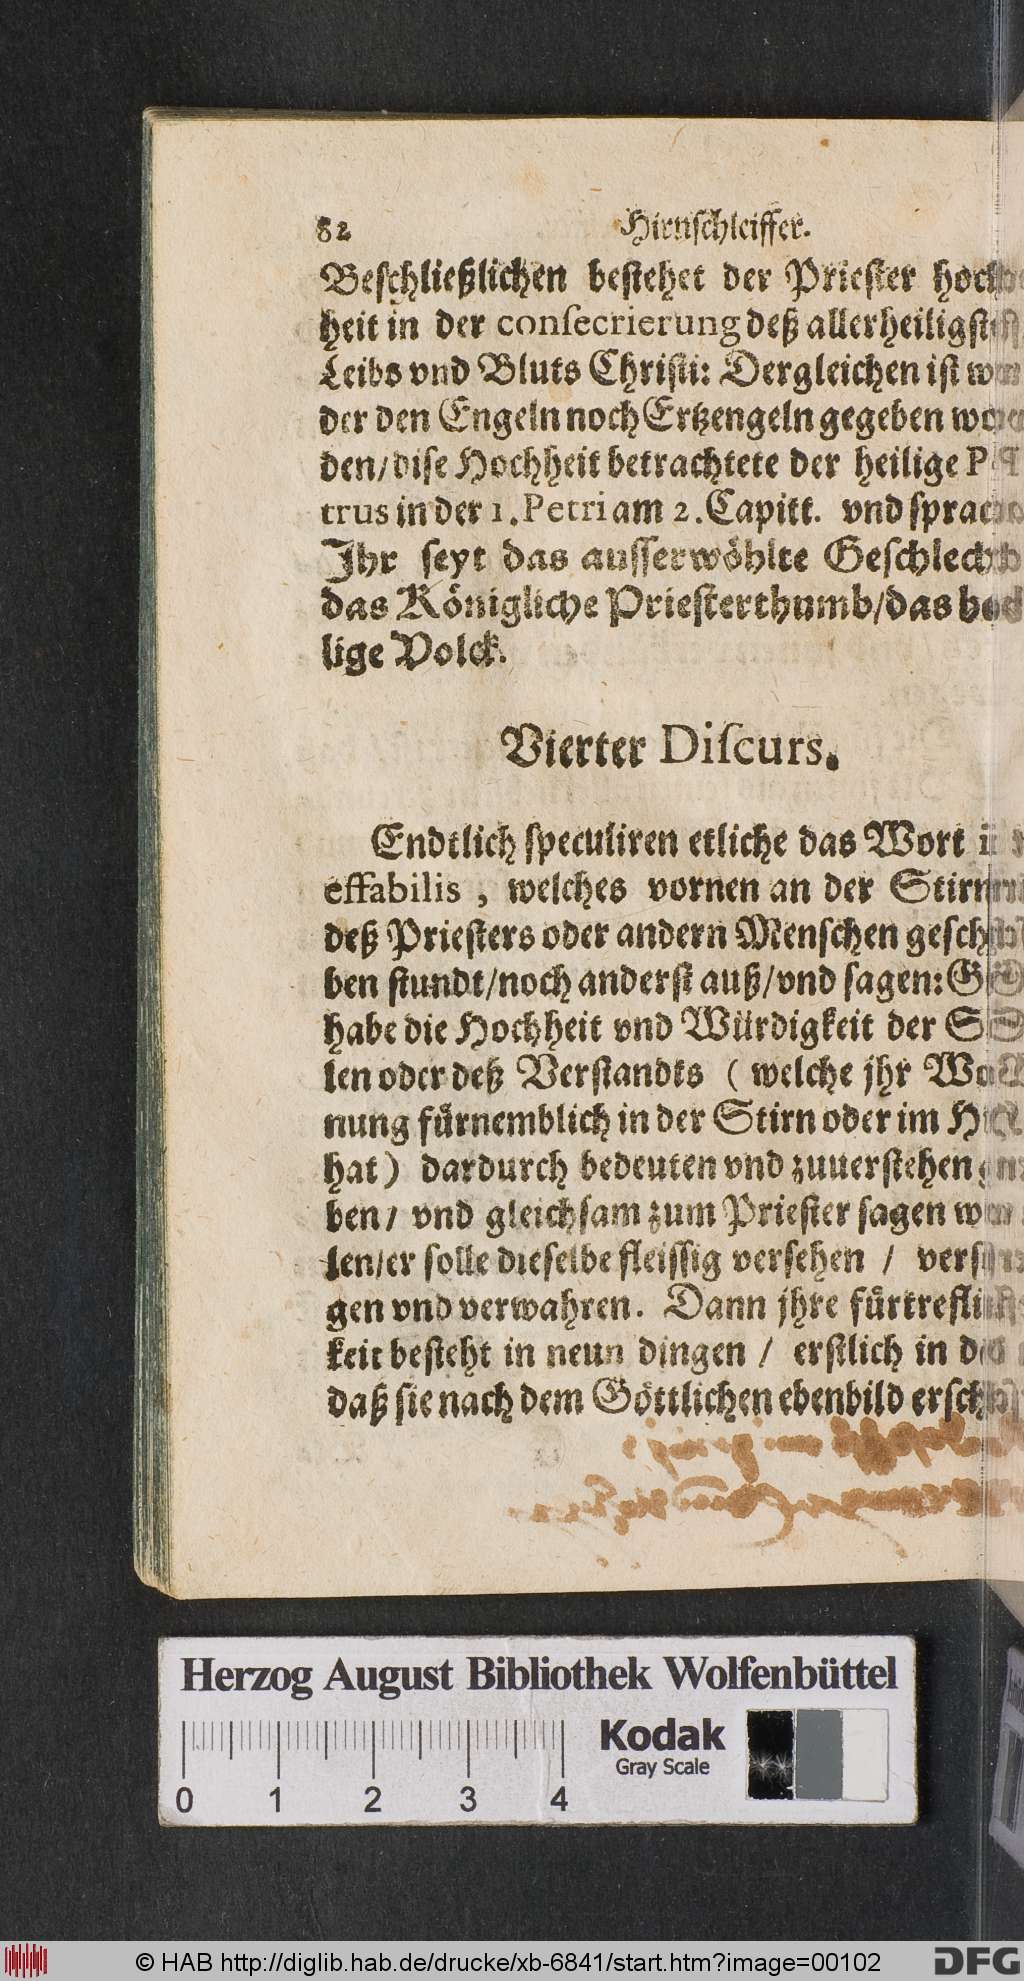 82 Hirnschleiffer.
Beschließlichen bestehet der Priester
heit in der consecrierung deß
Leibs vnd Bluts Christi: Dergleichen ist
der den Engeln noch Ertzengeln gegeben
den/dise Hochheit betrachtete der heilige
trus in der 1. Petri am 2. Capitt. vnd
Jhr seyt das ausserwöhlte
das Königliche Priesterthumb/das
lige Volck.
Vierter Discurs.
Endtlich speculiren etliche das Wort
effabilis, welches vornen an der
deß Priesters oder andern Menschen
ben stundt/noch anderst auß/vnd sagen:
habe die Hochheit vnd Würdigkeit der
len oder deß Verstandts (welche jhr
nung fürnemblich in der Stirn oder im
hat) dardurch bedeuten vnd zuuerstehen
ben/ vnd gleichsam zum Priester sagen
len/er solle dieselbe fleissig versehen /
gen vnd verwahren. Dann jhre
keit besteht in neun dingen / erstlich in
daß sie nach dem Göttlichen ebenbild
Herzog August Bibliothek Wolfenbüttel
Kodak
Gray Scale
0 1 2 3 4
© HAB http://diglib.hab.de/drucke/xb-6841/start.htm?image=00102
DFG